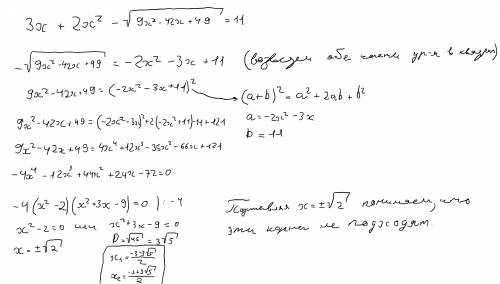 3x + 2x² - √(9x² - 42x + 49) = 11
-√(9x² - 42x + 49) = -2x² - 3x + 11 (возводим обе части ур-я в квадрат)
9x² - 42x + 49 = (-2x² - 3x + 11)²
(a+b)² = a² + 2ab + b²
a = -2x² - 3x
b = 11
9x² - 42x + 49 = (-2x² - 3x)² + 2(-2x² + 11)·11 + 121
9x² - 42x + 49 = 4x⁴ + 12x³ - 35x² - 66x + 121
-4x⁴ - 12x³ + 44x² + 24x - 72 = 0
-4(x² - 2)(x² + 3x - 9) = 0 | : -4
x² - 2 = 0 или x² + 3x - 9 = 0
x = ±√2
D = √45 = 3√5
x₁ = (-3-3√5)/2
x₂ = (-3+3√5)/2
Подставляя x = ±√2 понимаем, что
эти корни не подходят.